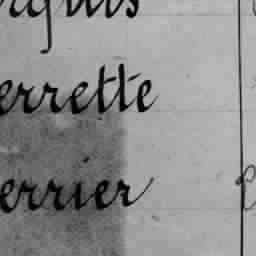 errette
errier